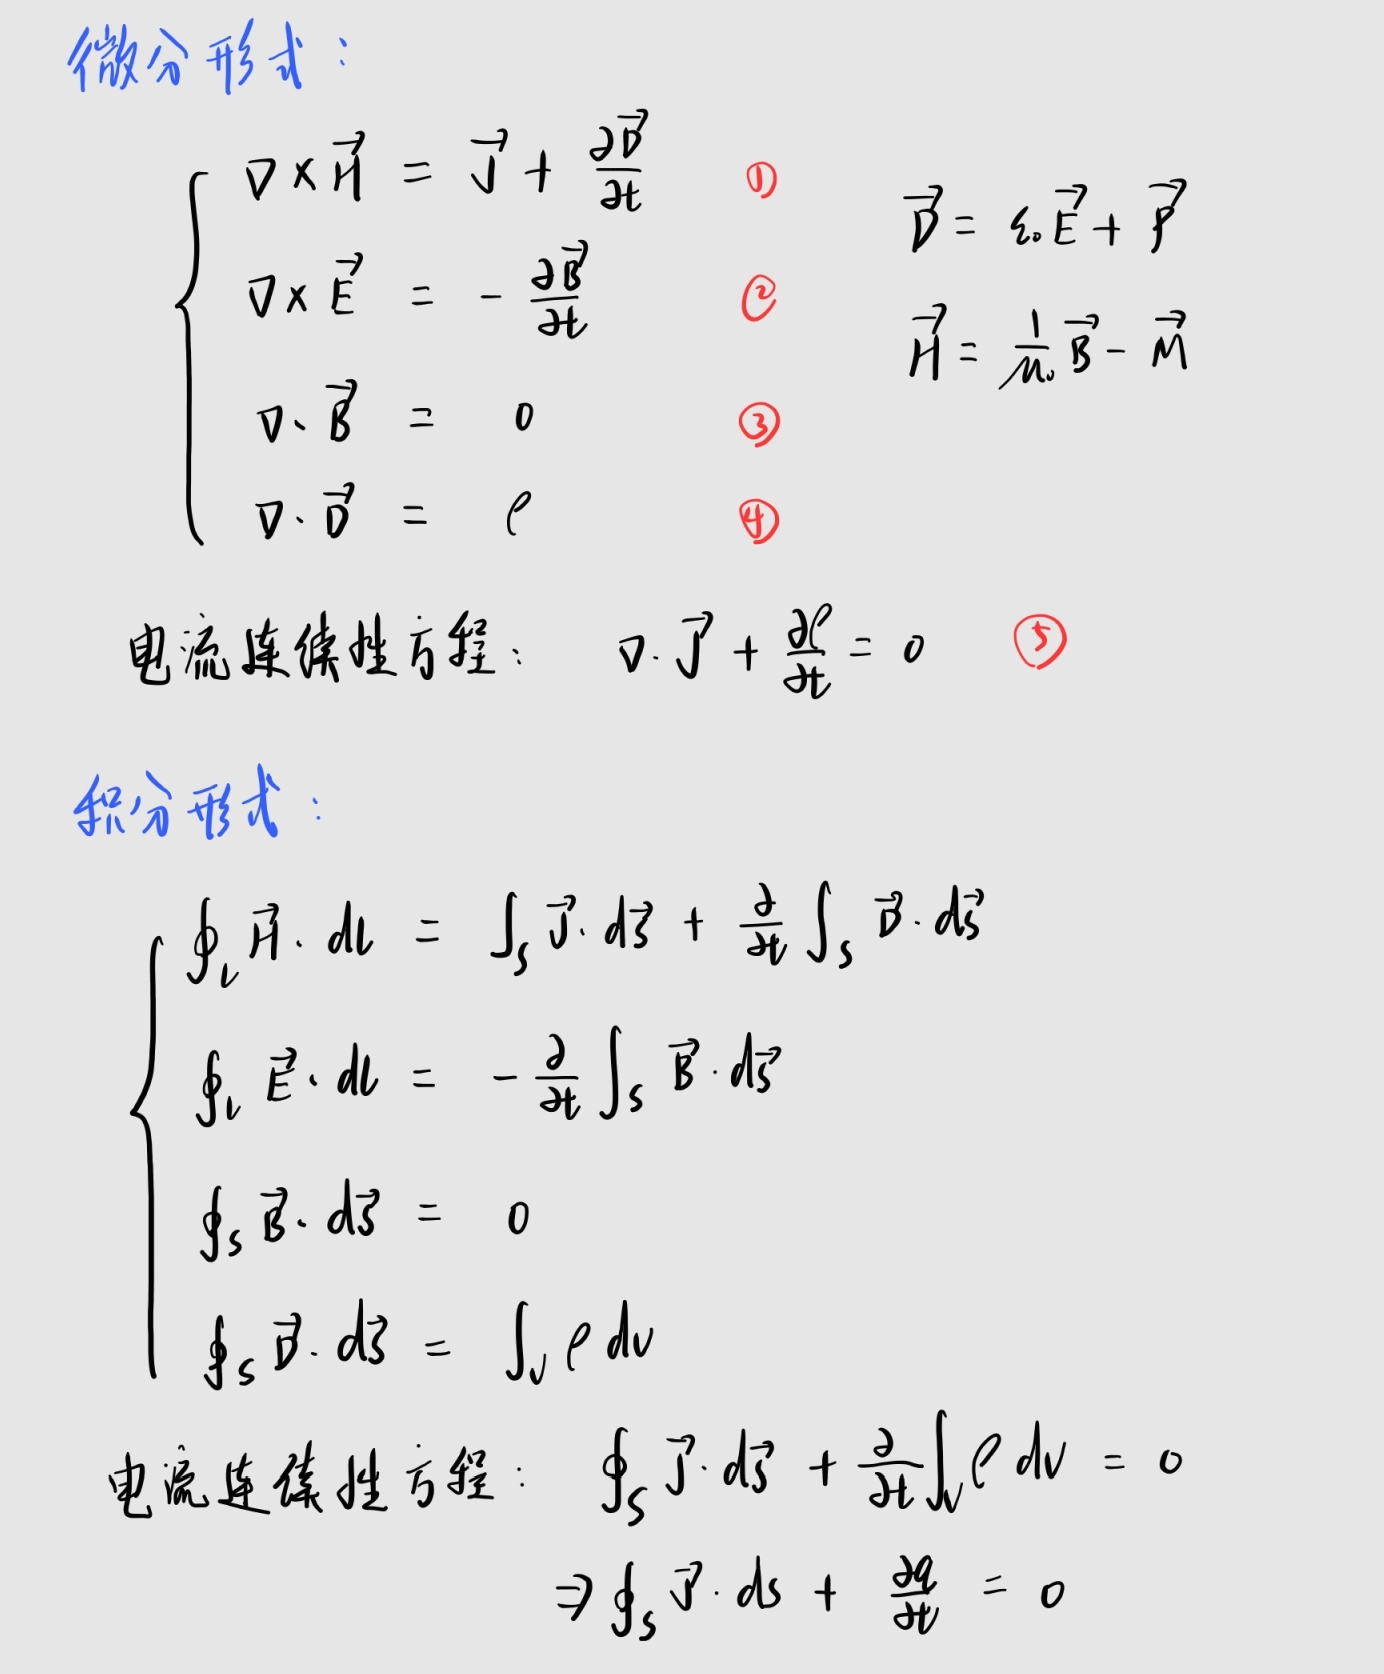 微分形式：
∇×H⃗ = J⃗ + ∂D⃗/∂t ①
∇×E⃗ = - ∂B⃗/∂t ②
∇·B⃗ = 0 ③
∇·D⃗ = ρ ④
D⃗ = ε₀E⃗ + P⃗
H⃗ = 1/μ₀ B⃗ - M⃗
电流连续性方程： ∇·J⃗ + ∂ρ/∂t = 0 ⑤
积分形式：
∮_l H⃗·dl = ∫_S J⃗·dS⃗ + ∂/∂t ∫_S D⃗·dS⃗
∮_l E⃗·dl = - ∂/∂t ∫_S B⃗·dS⃗
∮_S B⃗·dS⃗ = 0
∮_S D⃗·dS⃗ = ∫_V ρ dv
电流连续性方程： ∮_S J⃗·dS⃗ + ∂/∂t ∫_V ρ dv = 0
⇒ ∮_S J⃗·ds + ∂q/∂t = 0